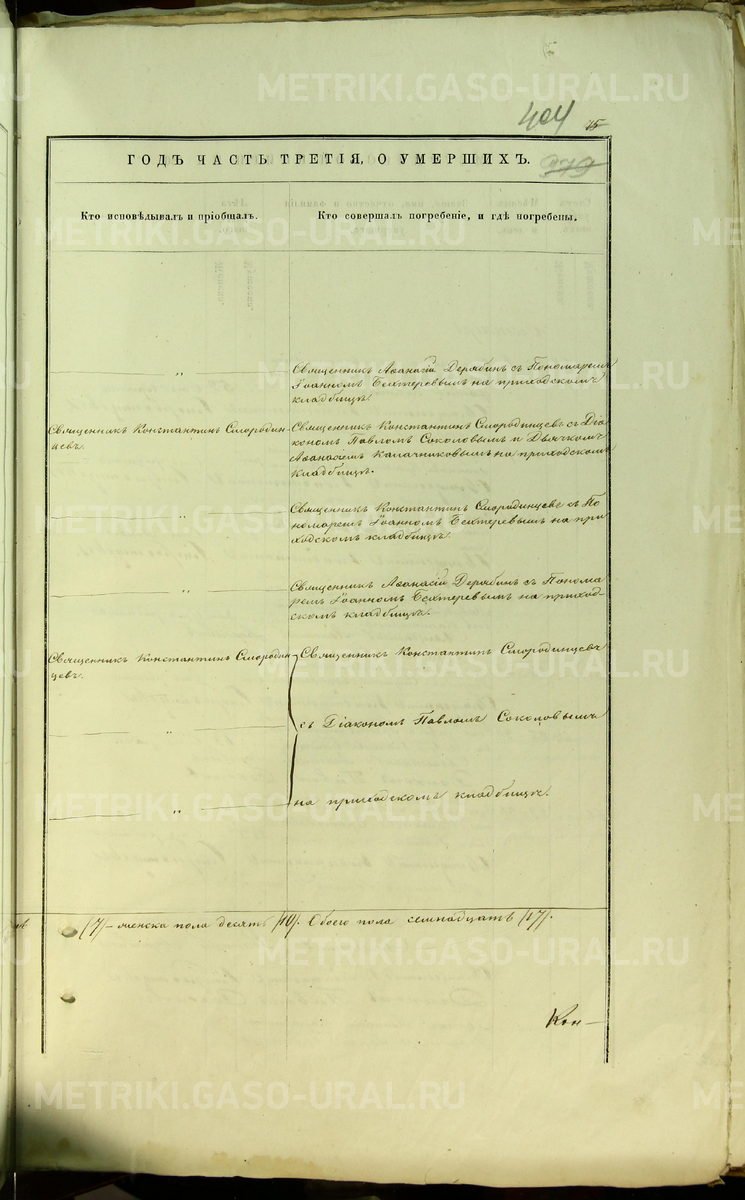 METRIKI.GASO-URAL.RU
404 45
ГОДЪ ЧАСТЬ ТРЕТІЯ, О УМЕРШИХЪ.
379
Кто исповѣдывалъ и пріобщалъ.
Кто совершалъ погребеніе, и гдѣ погребены.
„
Священникъ Аѳанасій Дерябинъ съ Пономаремъ
Іоанномъ Бехтеревымъ на приходскомъ
кладбищѣ.
Священникъ Константинъ Смородин-
цевъ.
Священникъ Константинъ Смородинцевъ съ Діа
кономъ Павломъ Соколовымъ и Дьячкомъ
Аѳанасіемъ Калачниковымъ на приходскомъ
кладбищѣ.
„
Священникъ Константинъ Смородинцевъ съ По
номаремъ Іоанномъ Бехтеревымъ на при
ходскомъ кладбищѣ.
„
Священникъ Аѳанасій Дерябинъ съ Понома
ремъ Іоанномъ Бехтеревымъ на приход-
скомъ кладбищѣ.
Священникъ Константинъ Смородин
цевъ.
Священникъ Константинъ Смородинцевъ
„
съ Діакономъ Павломъ Соколовымъ
„
на приходскомъ кладбищѣ.
/7/ – женска пола десять /10/. Обоего пола семнадцать /17/.
Кон—
METRIKI.GASO-URAL.RU